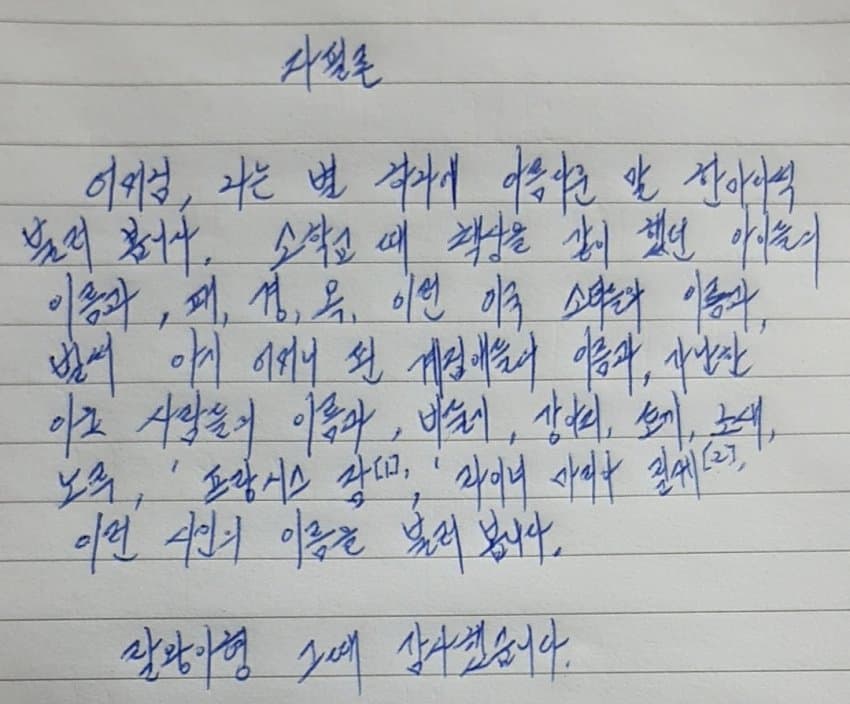 자필존
어머님, 나는 별 하나에 아름다운 말 한마디씩
불러 봅니다. 소학교 때 책상을 같이 했던 아이들의
이름과, 패, 경, 옥, 이런 이국 소녀들의 이름과,
벌써 아기 어머니 된 계집애들의 이름과, 가난한
이웃 사람들의 이름과, 비둘기, 강아지, 토끼, 노새,
노루, '프랑시스 잠[1],' '라이너 마리아 릴케[2],
이런 시인의 이름을 불러 봅니다.
그때 감사했습니다.